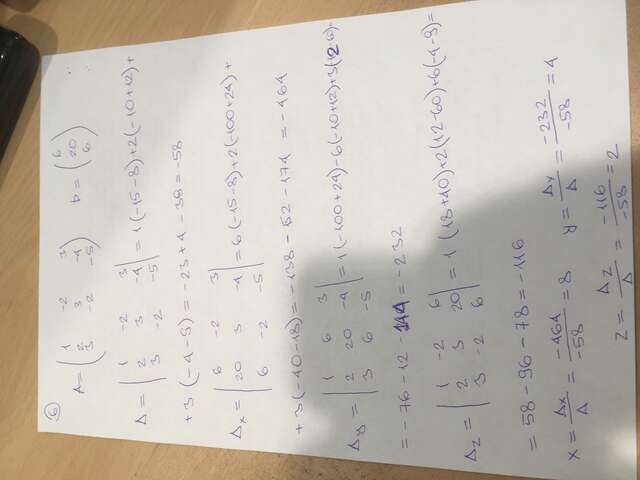 6
A = ( 1 -2 3
2 3 -4
3 -2 -5 ) b = ( 6
20
6 )
Δ = | 1 -2 3
2 3 -4
3 -2 -5 | = 1(-15-8)+2(-10+12)+
+3(-4-9) = -23+4-39 = -58
Δx = | 6 -2 3
20 3 -4
6 -2 -5 | = 6(-15-8)+2(-100+24)+
+3(-40-18) = -138-152-174 = -464
Δy = | 1 6 3
2 20 -4
3 6 -5 | = 1(-100+24)-6(-10+12)+3(12-60)=
= -76-12-144 = -232
Δz = | 1 -2 6
2 3 20
3 -2 6 | = 1(18+40)+2(12-60)+6(-4-9)=
= 58-96-78 = -116
x = Δx/Δ = -464/-58 = 8 y = Δy/Δ = -232/-58 = 4
z = Δz/Δ = -116/-58 = 2